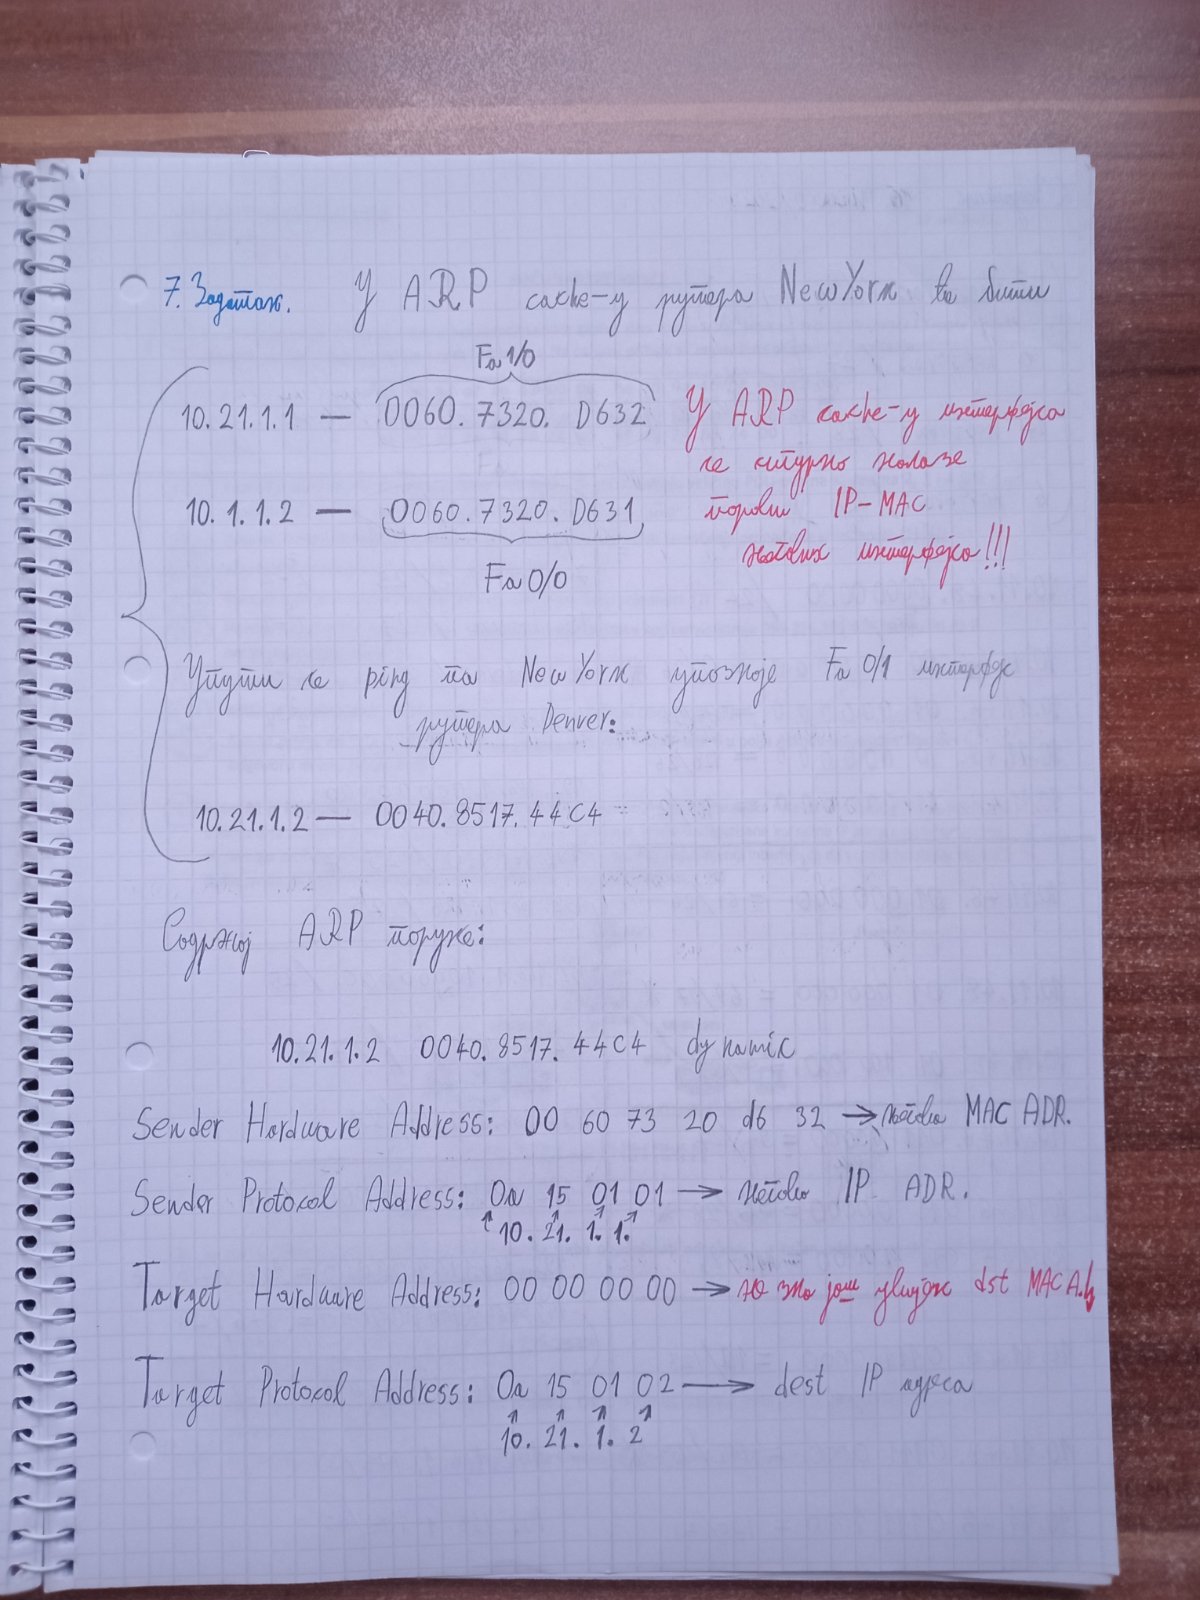 7. Задатак. У ARP cache-у рутера NewYork ће бити
Fa 1/0
10.21.1.1 — 0060.7320.D632
У ARP cache-у интерфејса
се сигурно налазе
10.1.1.2 — 0060.7320.D631
парови IP-MAC
његових интерфејса!!!
Fa 0/0
Упути се ping па NewYork упознаје Fa 0/1 интерфејс
рутера Denver:
10.21.1.2 — 0040.8517.44C4
Садржај ARP поруке:
10.21.1.2 0040.8517.44C4 dynamic
Sender Hardware Address: 00 60 73 20 d6 32 → његова MAC ADR.
Sender Protocol Address: 0a 15 01 01 → његова IP ADR.
10. 21. 1. 1.
Target Hardware Address: 00 00 00 00 → не зна још увијек dst MAC
Target Protocol Address: 0a 15 01 02 → dest IP адреса
10. 21. 1. 2